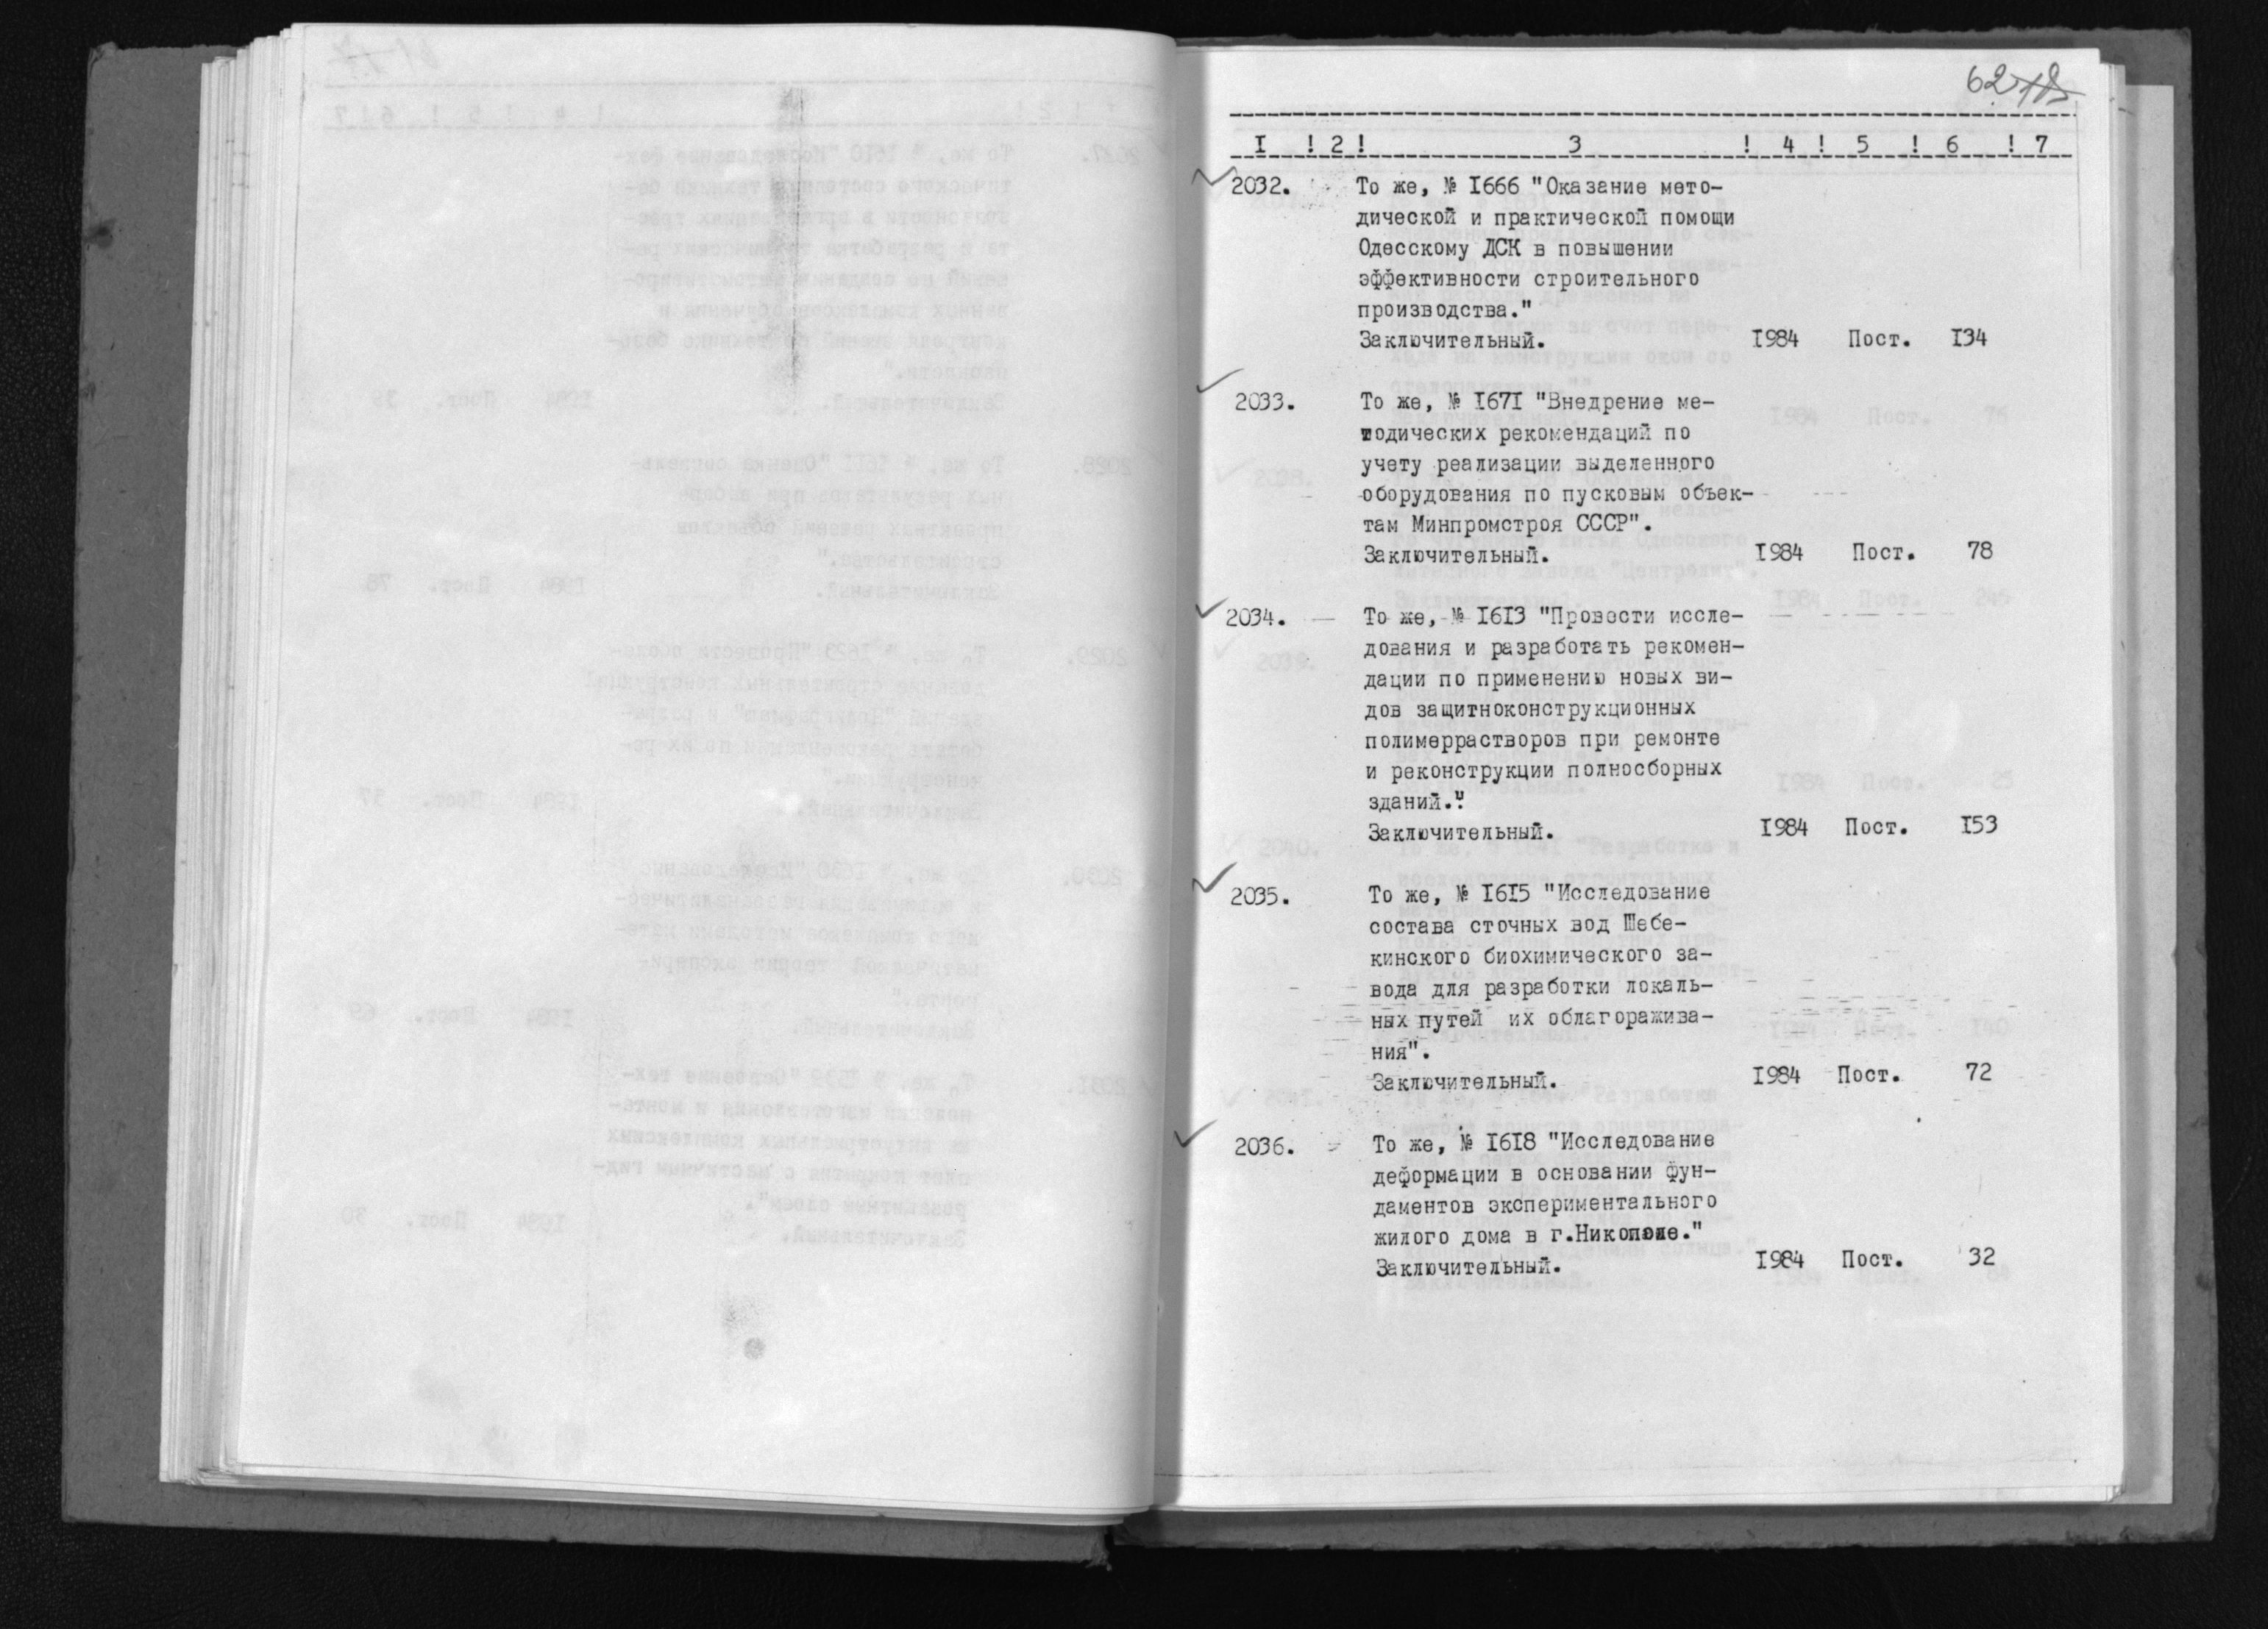 62
I ! 2 ! 3 ! 4 ! 5 ! 6 ! 7
2032. То же, № I666 "Оказание мето-
дической и практической помощи
Одесскому ДСК в повышении
эффективности строительного
производства."
Заключительный. I984 Пост. I34
2033. То же, № I67I "Внедрение ме-
тодических рекомендаций по
учету реализации выделенного
оборудования по пусковым объек-
там Минпромстроя СССР".
Заключительный. I984 Пост. 78
2034. То же, № I6I3 "Провести иссле-
дования и разработать рекомен-
дации по применению новых ви-
дов защитноконструкционных
полимеррастворов при ремонте
и реконструкции полносборных
зданий."
Заключительный. I984 Пост. I53
2035. То же, № I6I5 "Исследование
состава сточных вод Шебе-
кинского биохимического за-
вода для разработки локаль-
ных путей их облагоражива-
ния".
Заключительный. I984 Пост. 72
2036. То же, № I6I8 "Исследование
деформации в основании фун-
даментов экспериментального
жилого дома в г.Никополе."
Заключительный. I984 Пост. 32